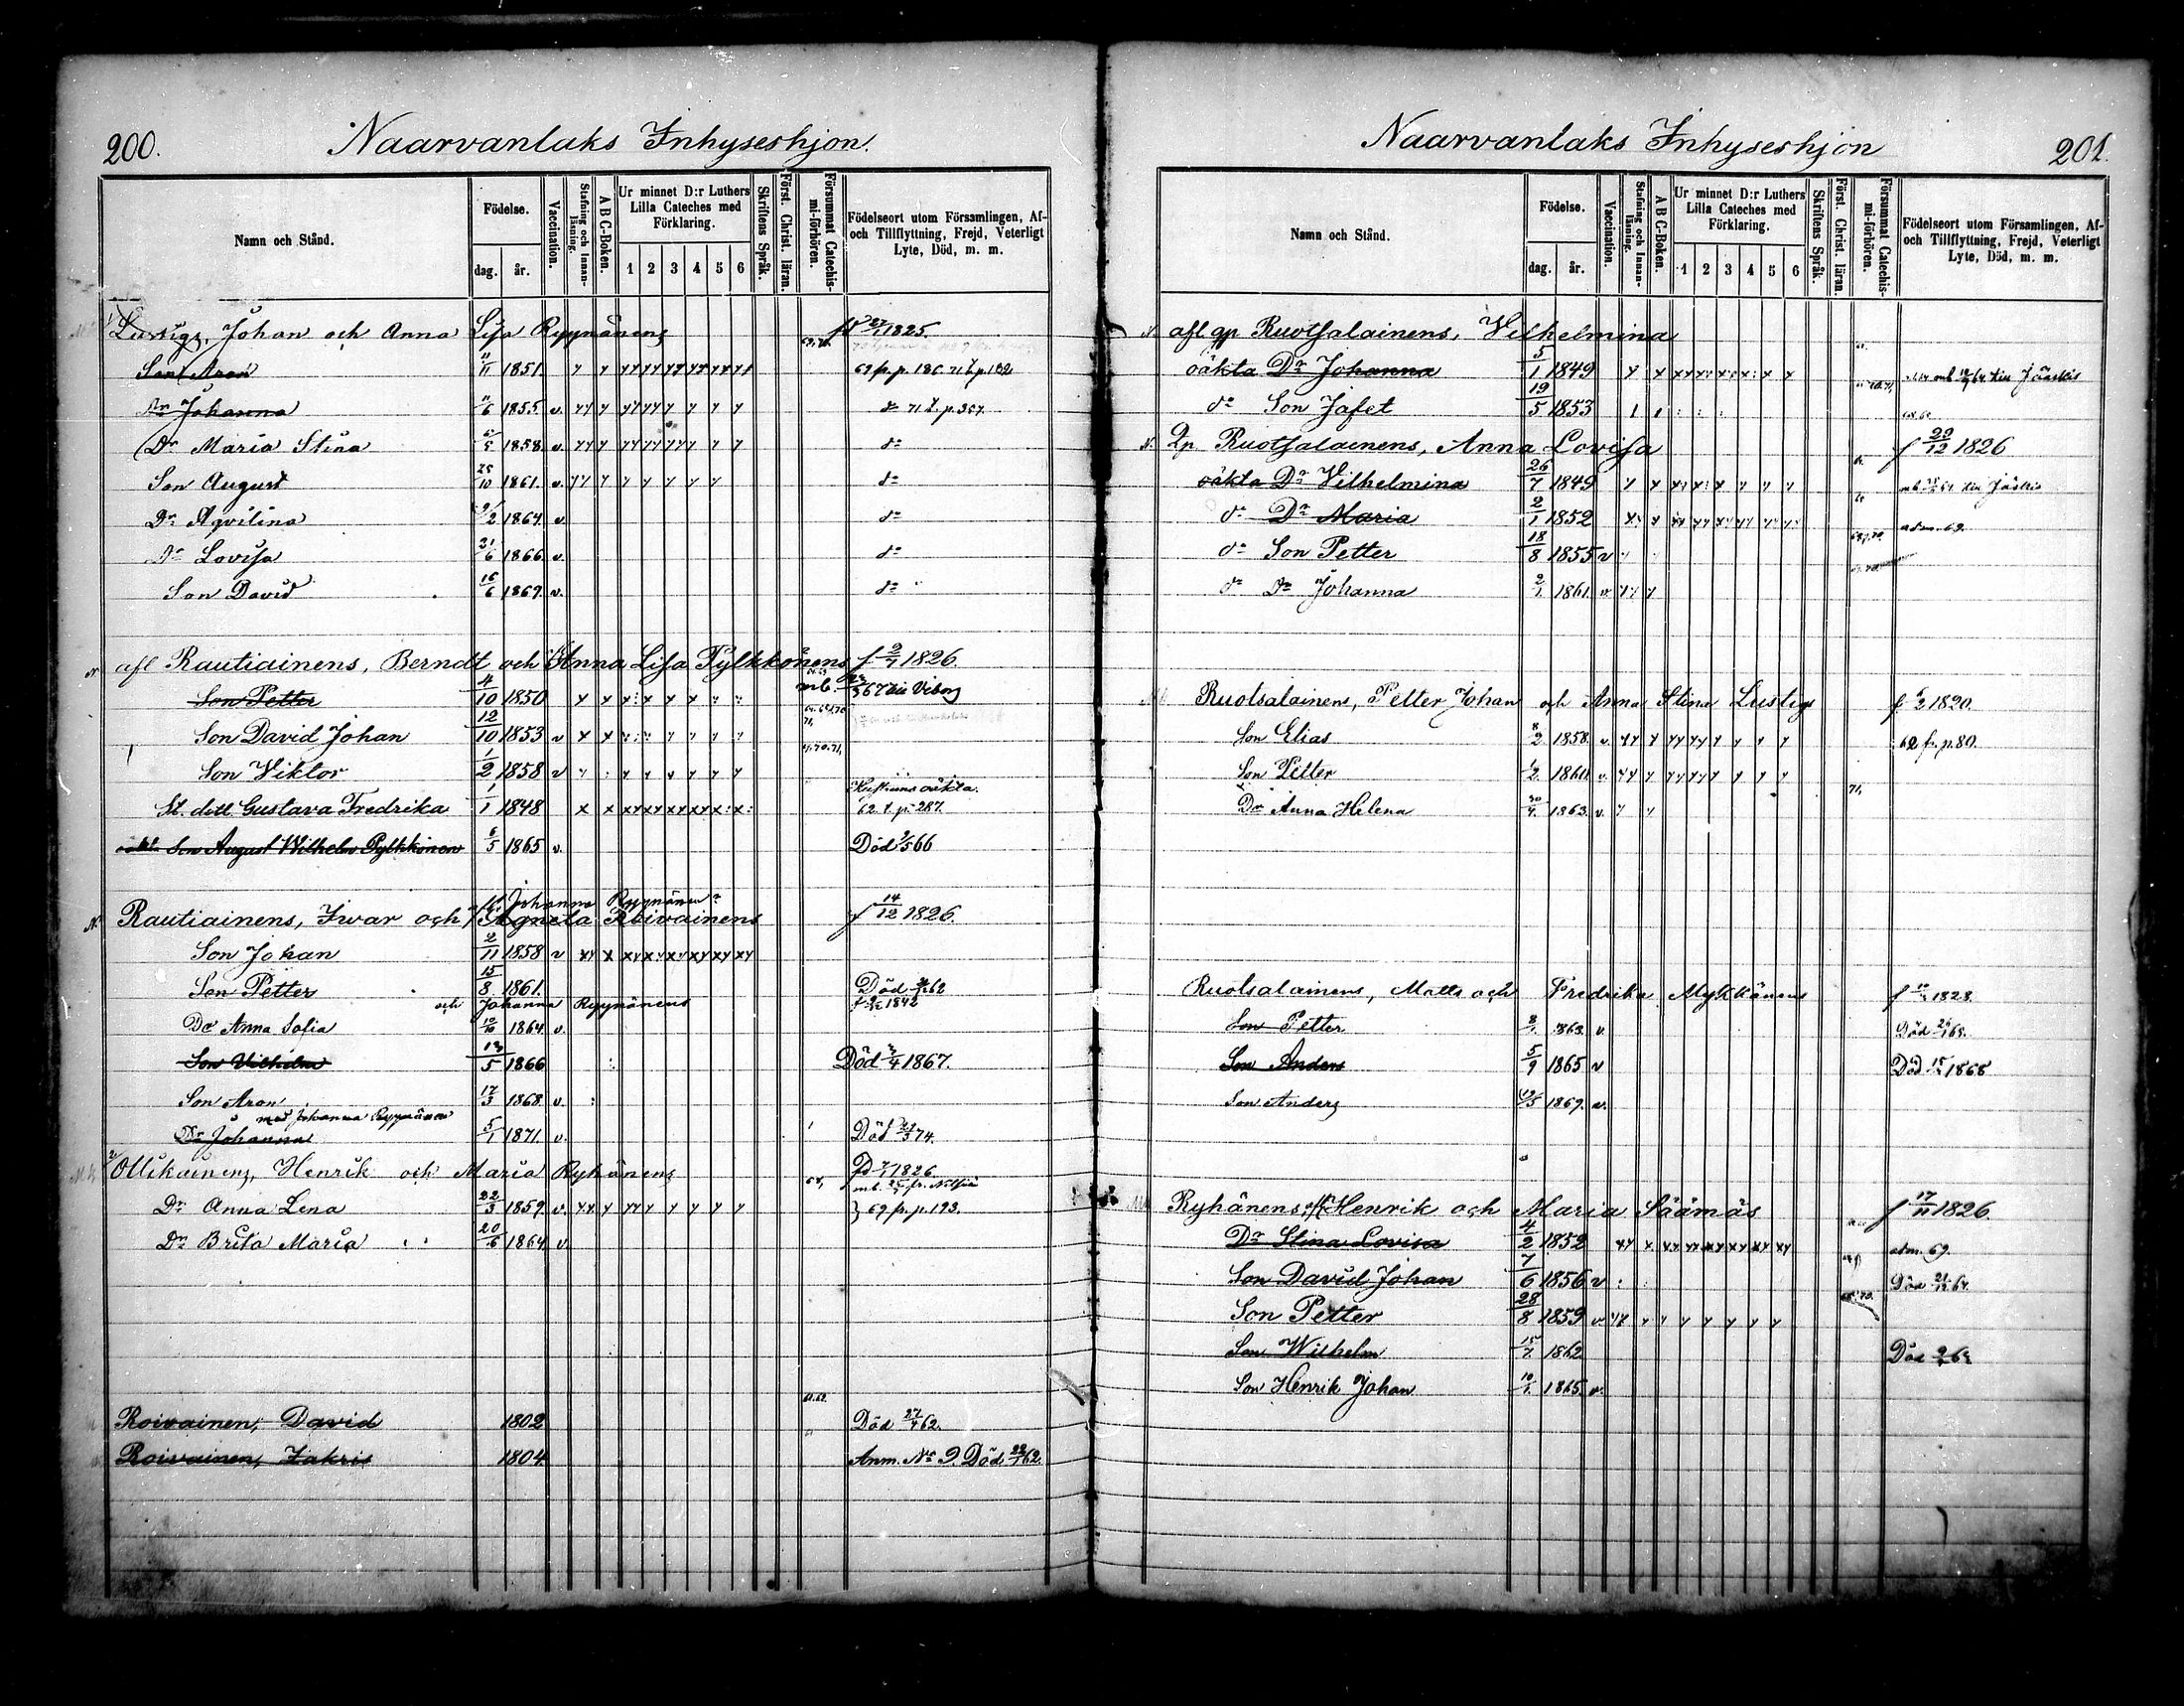 200.
Naarvanlaks Inhyseshjon.
Namn och Stånd.
Födelse.
dag. år.
Vaccination.
Stafning och Innanläsning.
A B C-Boken.
Ur minnet D:r Luthers Lilla Cateches med Förklaring.
1 2 3 4 5 6
Skriftens Språk.
Först. Christ. läran.
Försummat Catechismi-förhören.
Födelseort utom Församlingen, Af- och Tillflyttning, Frejd, Veterligt Lyte, Död, m. m.
Lustigs, Johan och Anna Lisa Ryynänens 1825.
Son Aron 11/11 1851. 69 fr. p. 180. 71 t. p. 182
Dr Johanna 11/6 1855 v. do 71 t. p. 307.
Dr Maria Stina 1858 v. do
Son August 25/10 1861. v. do
Dr Aqvilina 1864. v. do
Dr Lovisa 21/6 1866 v. do
Son David 16/6 1869. v. do
afl Rautiainens, Berndt och Anna Lisa Pylkkönens f 2/7 1826.
Son Petter 4/10 1850 mb. 67 till Viborg
Son David Johan 12/10 1853 v
Son Viktor 1/2 1858 v
St. dott. Gustava Fredrika 1/1 1848 Hustruns oäkta. 62. t. p. 287.
oäkta Son August Wilhelm Pylkkönen 6/5 1865 v. Död 66
Johanna Ryynänen
Rautiainens, Iwar och Agneta Roivainens f 14/12 1826.
Son Johan 2/11 1858 v
Son Petter 15/8 1861. Död 62
och Johanna Ryynänens 1842
Dr Anna Sofia 10/10 1864. v.
Son Vilhelm 13/5 1866 Död 3/4 1867.
Son Aron 17/3 1868. v.
med Johanna Ryynänen
Dr Johanna 5/1 1871. v. Död 74.
Ollikainens, Henrik och Maria Ryhänens 1826
mb. fr. Nilsiä
Dr Anna Lena 22/3 1859 v. 69 fr. p. 193.
Dr Brita Maria 20/6 1864 v.
Roivainen, David 1802 Död 27/4 62.
Roivainen, Zakris 1804 Anm. No 9. Död 62.
Naarvanlaks Inhyseshjon
201.
Namn och Stånd.
Födelse.
dag. år.
Vaccination.
Stafning och Innanläsning.
A B C-Boken.
Ur minnet D:r Luthers Lilla Cateches med Förklaring.
1 2 3 4 5 6
Skriftens Språk.
Först. Christ. läran.
Försummat Catechismi-förhören.
Födelseort utom Församlingen, Af- och Tillflyttning, Frejd, Veterligt Lyte, Död, m. m.
afl qp Ruotsalainens, Vilhelmina
oäkta Dr Johanna 5/1 1849 mb 64 till Jääskis
do Son Jafet 19/5 1853
Qp. Ruotsalainens, Anna Lovisa f 29/12 1826
oäkta Dr Vilhelmina 26/7 1849 mb 64 till Jääskis
do Dr Maria 2/1 1852 adm. 69.
do Son Petter 18/8 1855 v
do Dr Johanna 1861. v
Ruotsalainens, Petter Johan och Anna Stina Lustigs f. 1820.
Son Elias 8/2 1858. v. 62 fr. p. 80.
Son Petter 1/2 1860. v.
Dr Anna Helena 1863. v.
Ruotsalainens, Matts och Fredrika Mykkänens f 1828.
Son Petter 1863. v. Död 68.
Son Anders 5/9 1865 v Död 1868
Son Anders 1869. v.
Ryhänens, Henrik och Maria Säämäs f 17/11 1826.
Dr Stina Lovisa 4/2 1852 adm. 69.
Son David Johan 7/6 1856 v Död 21/12 64.
Son Petter 28/8 1859 v.
Son Wilhelm 15/7 1862 Död
Son Henrik Johan 1865 v.